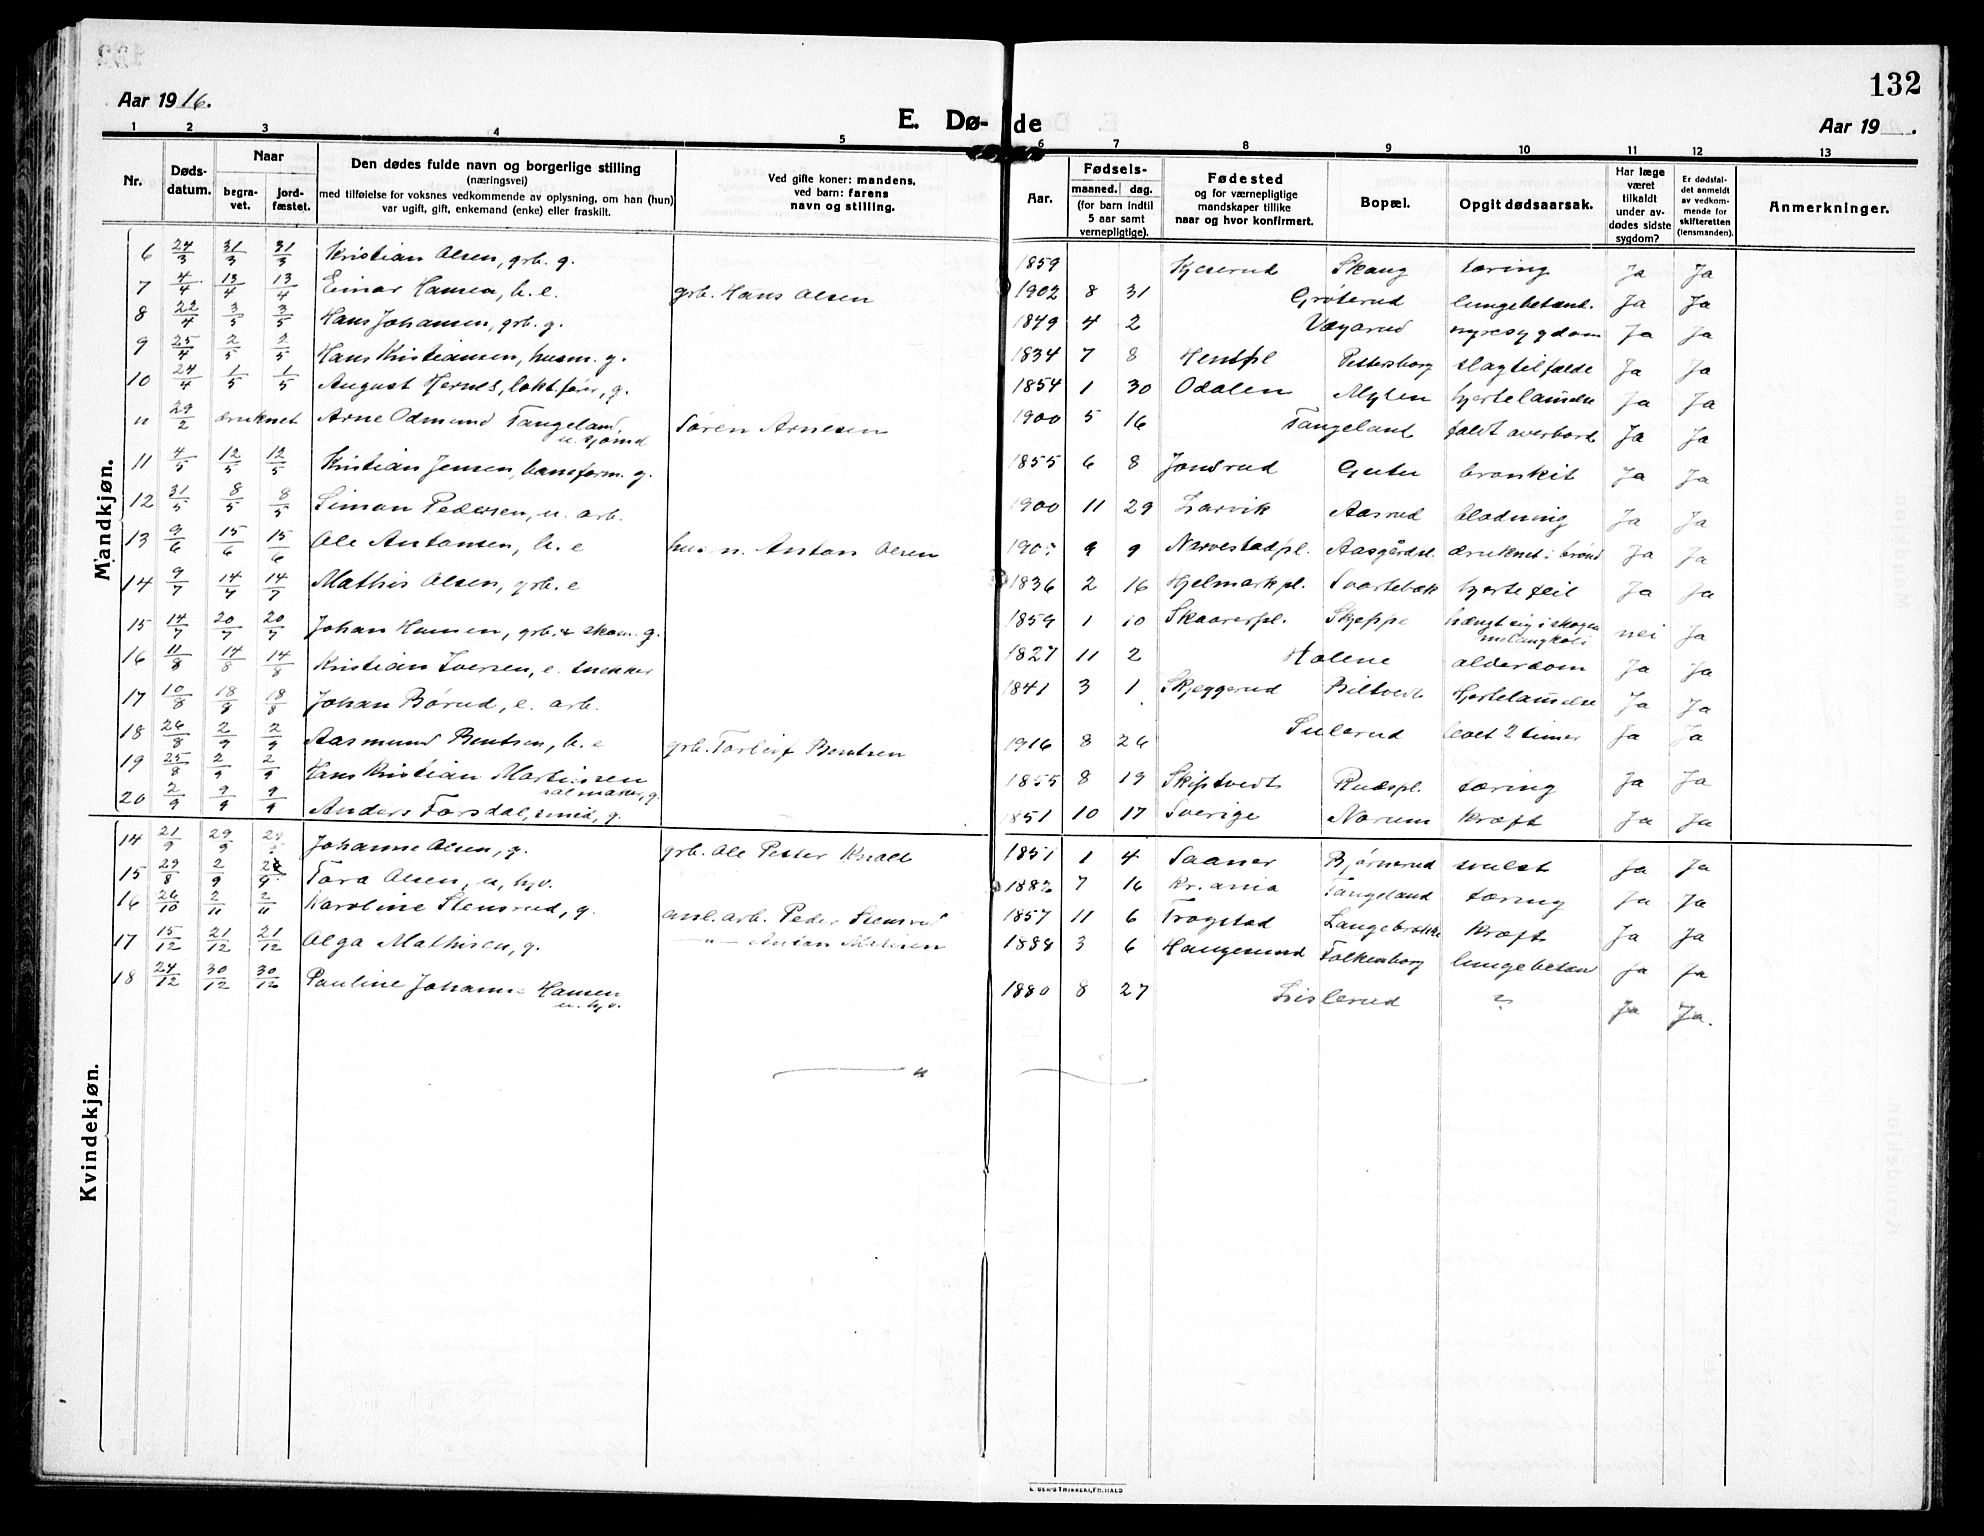 132
Aar 1916.
E. Dø- de
Aar 19 .
1 2 3 4 5 6 7 8 9 10 11 12 13
Nr.
Døds-
datum.
Naar
begra-
vet.
jord-
fæstet.
Den dødes fulde navn og borgerlige stilling
(næringsvei)
med tilføielse for voksnes vedkommende av oplysning, om han (hun)
var ugift, gift, enkemand (enke) eller fraskilt.
Ved gifte koner: mandens,
ved barn: farens
navn og stilling.
Aar.
Fødsels-
maaned. dag.
(for barn indtil
5 aar samt
vernepligtige).
Fødested
og for værnepligtige
mandskaper tillike
naar og hvor konfirmert.
Bopæl.
Opgit dødsaarsak.
Har læge
været
tilkaldt
under av-
dødes sidste
sygdom?
Er dødsfal-
det anmeldt
av vedkom-
mende for
skifteretten
(lensmanden).
Anmerkninger.
Mandkjøn.
6 24/3 31/3 31/3 Kristian Olsen, grb. g. 1859 Kjeserud Skaug tæring Ja Ja
7 4/4 13/4 13/4 Einar Hansen, b. e. grb. Hans Olsen 1902 8 31 Grøterud lungebetænd. Ja Ja
8 22/4 3/5 3/5 Hans Johansen, grb. g. 1849 4 2 nyresygdom Ja Ja
9 25/4 2/5 2/5 Hans Kristiansen, husm. g. 1834 7 8 Pettersborg slagtilfælde Ja Ja
10 24/4 1/5 1/5 August Hernes, g. 1854 1 30 Odalen Myten hjertelammelse Ja Ja
" 29/2 druknet Arne Odmund Tangeland,
u. sjømd Søren Arnesen 1900 5 16 Tangeland faldt overbord Ja Ja
11 4/5 12/5 12/5 Kristian Jensen, baneform. g. 1855 6 8 Jonsrud Gutu bronkit Ja Ja
12 31/5 8/5 8/5 Simon Pedersen, u. arb. 1900 11 29 Larvik Aasrud blødning Ja Ja
13 9/6 15/6 15/6 Ole Antonsen, b. e Anton Olsen 9 9 Narvestadpl. Aasgårdsl. druknet i brønd Ja Ja
14 9/7 14/7 14/7 Mathis Olsen, grb. e 1836 2 16 Hjelmark pl. Svartebæk hjertefeil Ja Ja
15 14/7 20/7 20/7 Johan Hansen, grb. & skom. g. 1859 1 10 Skaarerpl. Skjeppe hængt sig i skogen
melangkoli nei Ja
16 11/8 14/8 14/8 Kristian Iversen, e. snekker 1827 11 2 Holene alderdom Ja Ja
17 10/8 18/8 18/8 Johan Børud, e. arb. 1841 3 1 Skjeggerud Biltvedt Hjertelammelse Ja Ja
18 26/8 2/9 2/9 Aasmund Bentsen, b. e grb. Torleif Bentsen 1916 8 26 Sulerud levet 2 timer Ja Ja
19 25/8 2/9 2/9 Hans Kristian Martinsen
salmaker, g. 1855 8 19 Skiptvedt Rudspl. tæring Ja Ja
20 2/9 9/9 9/9 Anders Forsdal, smed, g. 1851 10 17 Sverige Norum kræft Ja Ja
Kvindekjøn.
14 21/9 29/9 29 Johanne Olsen, g. grb. Ole Petter Knold 1851 1 4 Saaner Bjørnerud svulst Ja Ja
15 29/8 2/9 2/9 Tora Olsen, u, hjv. 1882 7 16 Kr.ania Tangeland tæring Ja Ja
16 26/10 2/11 2/11 Karoline Stensrud, g. anl. arb. Peder Stensrud 1857 11 6 Trøgstad Langebrække kræft Ja Ja
17 15/12 21/12 21/12 Olga Mathisen, g. —"— Anton Mathisen 1884 3 6 Haugesund Falkenborg lungebetæn Ja Ja
18 24/12 30/12 30/12 Pauline Johanne Hansen
u. hjv. 1880 8 27 Lislerud ? Ja Ja.